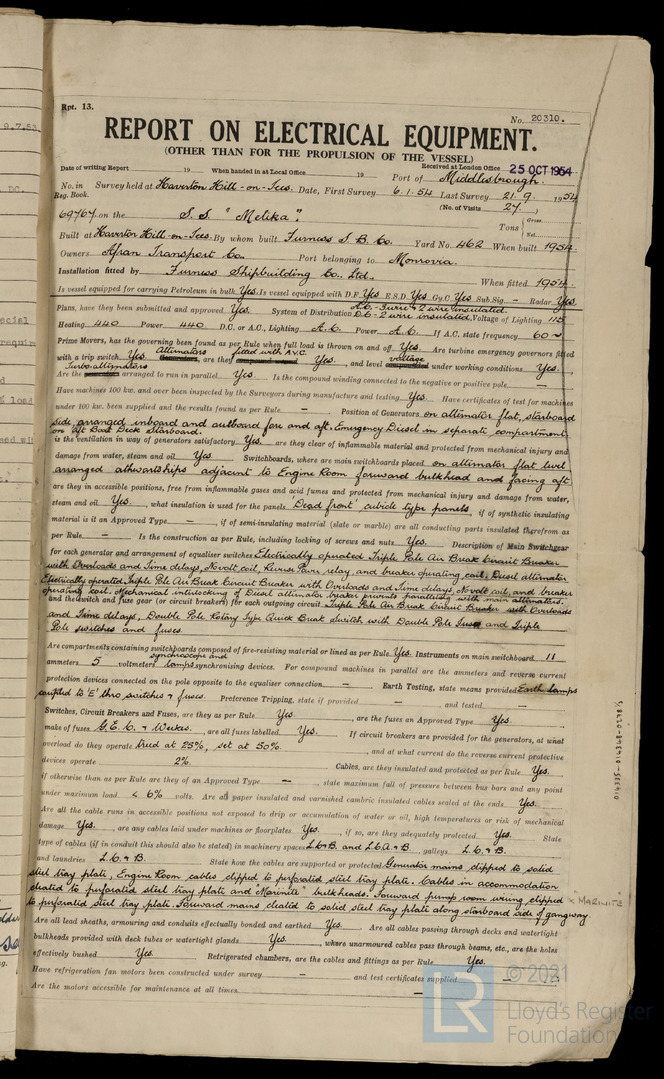 Rpt. 13.
No. 20310.
REPORT ON ELECTRICAL EQUIPMENT.
(OTHER THAN FOR THE PROPULSION OF THE VESSEL)
Received at London Office 25 OCT 1954
Date of writing Report 19 When handed in at Local Office 19 Port of Middlesbrough.
No. in Reg. Book. Survey held at Haverton Hill-on-Tees. Date, First Survey 6.1.54 Last Survey 21.9. 1954
(No. of Visits 27)
69767 on the S.S "Melika". Tons { Gross Net
Built at Haverton Hill-on-Tees. By whom built Furness S B Co. Yard No. 462 When built 1954.
Owners Afran Transport Co. Port belonging to Monrovia.
Installation fitted by Furness Shipbuilding Co. Ltd. When fitted 1954.
Is vessel equipped for carrying Petroleum in bulk Yes. Is vessel equipped with D.F. Yes E.S.D. Yes Gy.C. Yes Sub.Sig. – Radar Yes.
Plans, have they been submitted and approved Yes. System of Distribution A.C.-3 wire & 2 wire insulated. D.C-2 wire insulated. Voltage of Lighting 115
Heating 440 Power 440 D.C. or A.C., Lighting A.C. Power A.C. If A.C. state frequency 60~
Prime Movers, has the governing been found as per Rule when full load is thrown on and off Yes. Are turbine emergency governors fitted
with a trip switch Yes. Alternators are they fitted with A.V.C. Yes, and level voltage under working conditions Yes.
Are the Turbo alternators arranged to run in parallel Yes. Is the compound winding connected to the negative or positive pole –
Have machines 100 kw. and over been inspected by the Surveyors during manufacture and testing Yes. Have certificates of test for machines
under 100 kw. been supplied and the results found as per Rule – Position of Generators on alternator flat, starboard
side, arranged inboard and outboard fore and aft. Emergency Diesel in separate compartment
on aft Boat Deck Starboard.
is the ventilation in way of generators satisfactory Yes. are they clear of inflammable material and protected from mechanical injury and
damage from water, steam and oil Yes. Switchboards, where are main switchboards placed on alternator flat level
arranged athwartships adjacent to Engine Room forward bulkhead and facing aft
are they in accessible positions, free from inflammable gases and acid fumes and protected from mechanical injury and damage from water,
steam and oil Yes. what insulation is used for the panels 'Dead front' cubicle type panels, if of synthetic insulating
material is it an Approved Type –, if of semi-insulating material (slate or marble) are all conducting parts insulated therefrom as
per Rule – Is the construction as per Rule, including locking of screws and nuts Yes. Description of Main Switchgear
for each generator and arrangement of equaliser switches Electrically operated Triple Pole Air Break Circuit Breaker
with Overloads and Time delays, No volt coil, Reverse Power relay, and breaker operating coil. Diesel alternator
Electrically operated Triple Pole Air Break Circuit Breaker with Overloads and Time delays, No volt coil, and breaker
operating coil. Mechanical interlocking of Diesel alternator breaker prevents paralleling with main alternators.
and the switch and fuse gear (or circuit breakers) for each outgoing circuit Triple Pole Air Break Circuit Breaker with Overloads
and Time delays, Double Pole Rotary Type Quick Break Switch with Double Pole fuses and Triple
Pole switches and fuses.
Are compartments containing switchboards composed of fire-resisting material or lined as per Rule Yes. Instruments on main switchboard 11
ammeters 5 voltmeters synchroscope and lamps synchronising devices. For compound machines in parallel are the ammeters and reverse current
protection devices connected on the pole opposite to the equaliser connection – Earth Testing, state means provided Earth lamps
coupled to 'E' thro switches & fuses. Preference Tripping, state if provided – , and tested –
Switches, Circuit Breakers and Fuses, are they as per Rule Yes , are the fuses an Approved Type Yes.
make of fuses G.E.C. & , are all fuses labelled Yes. If circuit breakers are provided for the generators, at what
overload do they operate tried at 25%, set at 50%. , and at what current do the reverse current protective
devices operate 2%. Cables, are they insulated and protected as per Rule Yes.
if otherwise than as per Rule are they of an Approved Type – , state maximum fall of pressure between bus bars and any point
under maximum load < 6% volts. Are all paper insulated and varnished cambric insulated cables sealed at the ends Yes.
Are all the cable runs in accessible positions not exposed to drip or accumulation of water or oil, high temperatures or risk of mechanical
damage Yes. , are any cables laid under machines or floorplates Yes. , if so, are they adequately protected Yes. State
type of cables (if in conduit this should also be stated) in machinery spaces L.C.&B. and L.C.A.&B. galleys L.C.&B.
and laundries L.C.&B. State how the cables are supported or protected Generator mains clipped to solid
steel tray plate, Engine Room cables clipped to perforated steel tray plate. Cables in accommodation
cleated to perforated steel tray plate and "Marinite" bulkheads. Forward pump room wiring clipped × MARINITE
to perforated steel tray plate. Forward mains cleated to solid steel tray plate along starboard side of gangway.
Are all lead sheaths, armouring and conduits effectually bonded and earthed Yes. Are all cables passing through decks and watertight
bulkheads provided with deck tubes or watertight glands Yes. , where unarmoured cables pass through beams, etc., are the holes
effectively bushed Yes. Refrigerated chambers, are the cables and fittings as per Rule Yes.
Have refrigeration fan motors been constructed under survey – and test certificates supplied –
Are the motors accessible for maintenance at all times –
© 2021
Lloyd's Register
Foundation
LR